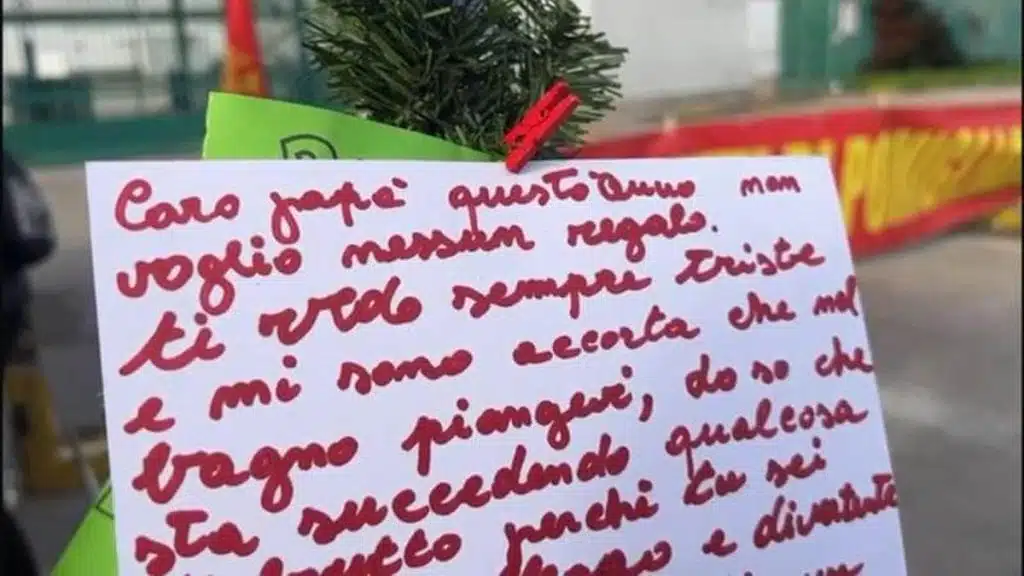 Caro papà quest'anno non
voglio nessun regalo.
ti vedo sempre triste
e mi sono accorta che nel
bagno piangevi, lo so che
sta succedendo qualcosa
brutto perchè tu sei
e divertente